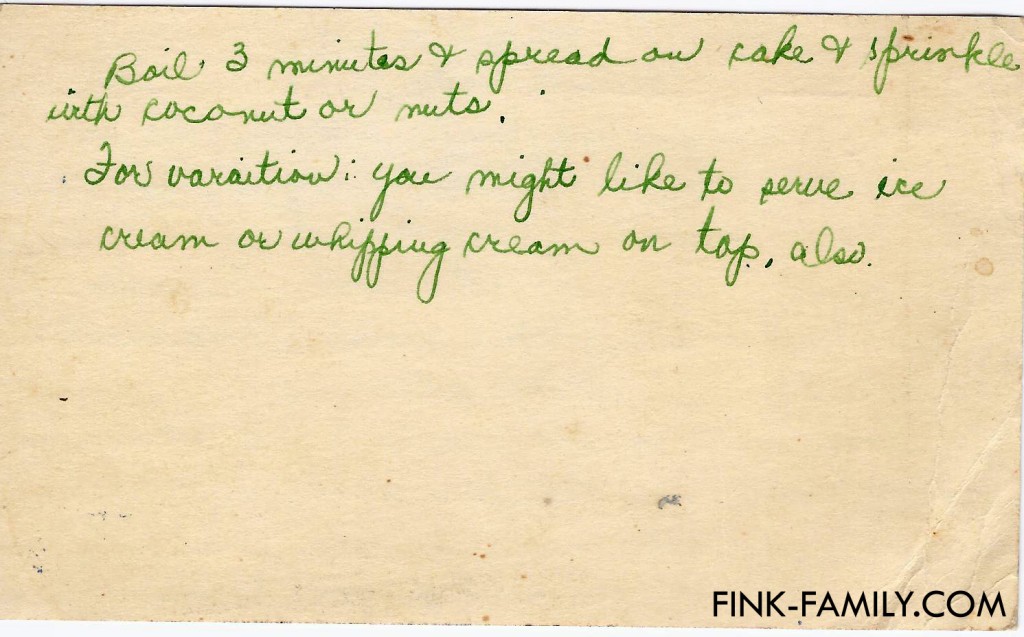 Boil 3 minutes & spread on cake & sprinkle
with coconut or nuts.
For varaition: you might like to serve ice
cream or whipping cream on top, also.
FINK-FAMILY.COM